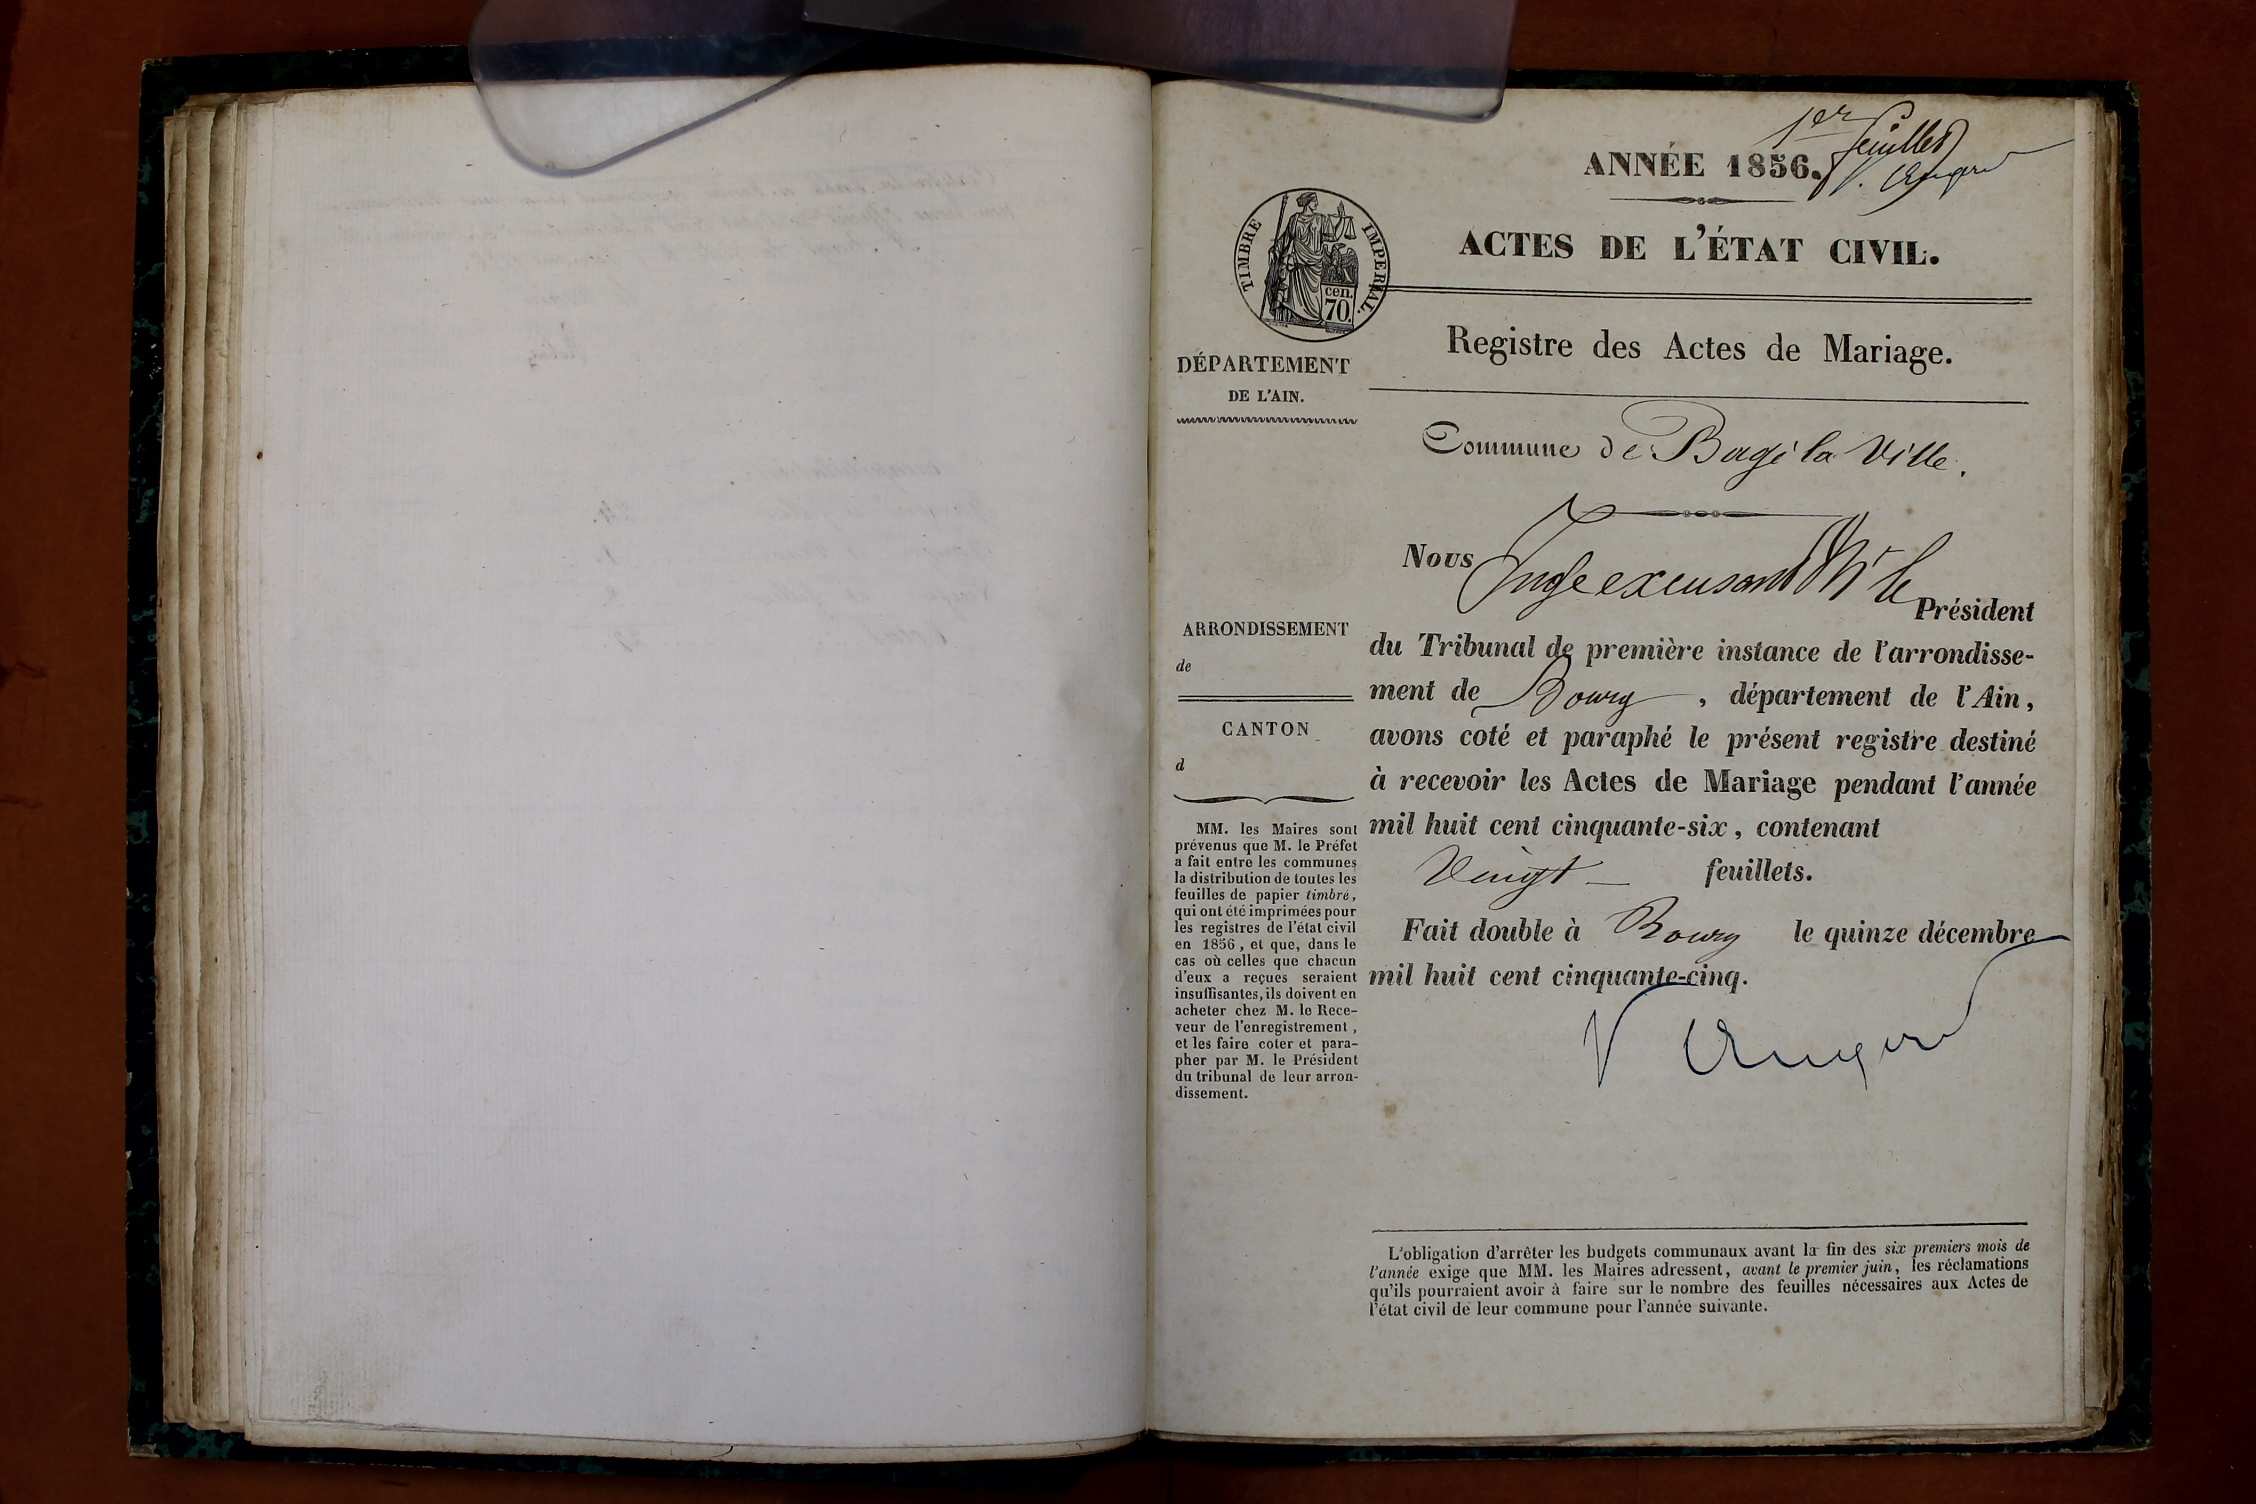 1er feuillet
ANNÉE 1856.
ACTES DE L'ÉTAT CIVIL.
TIMBRE IMPERIAL.
cen.
70.
Registre des Actes de Mariage.
DÉPARTEMENT
DE L'AIN.
Commune de Bagé la Ville.
Nous Juge excusant Mr le Président
du Tribunal de première instance de l'arrondisse-
ment de Bourg, département de l'Ain,
avons coté et paraphé le présent registre destiné
à recevoir les Actes de Mariage pendant l'année
mil huit cent cinquante-six, contenant
Vingt feuillets.
Fait double à Bourg le quinze décembre
mil huit cent cinquante-cinq.
ARRONDISSEMENT
de
CANTON
d
MM. les Maires sont
prévenus que M. le Préfet
a fait entre les communes
la distribution de toutes les
feuilles de papier timbré,
qui ont été imprimées pour
les registres de l'état civil
en 1856, et que, dans le
cas où celles que chacun
d'eux a reçues seraient
insuffisantes, ils doivent en
acheter chez M. le Rece-
veur de l'enregistrement,
et les faire coter et para-
pher par M. le Président
du tribunal de leur arron-
dissement.
L'obligation d'arrêter les budgets communaux avant la fin des six premiers mois de
l'année exige que MM. les Maires adressent, avant le premier juin, les réclamations
qu'ils pourraient avoir à faire sur le nombre des feuilles nécessaires aux Actes de
l'état civil de leur commune pour l'année suivante.